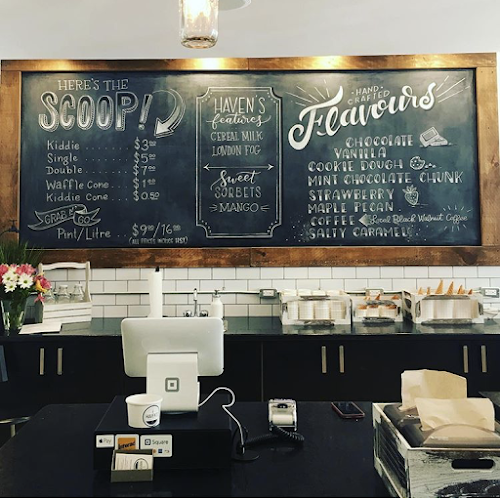 HERE'S THE
SCOOP!
Kiddie ....... $3.00
Waffle Cone ..... $1.00
Kiddie Cone .... $0.50
GRAB & GO
Pint/Litre $9.00/16.00
(ALL PRICES INCLUDE HST)
HAVEN'S
features
CEREAL MILK
LONDON FOG
Sweet
SORBETS
~MANGO~
-HAND-
CRAFTED
Flavours
CHOCOLATE
VANILLA
COOKIE DOUGH
MINT CHOCOLATE CHUNK
STRAWBERRY
MAPLE PECAN
COFFEE Local Black Walnut Coffee
SALTY CARAMEL
Pay
Square